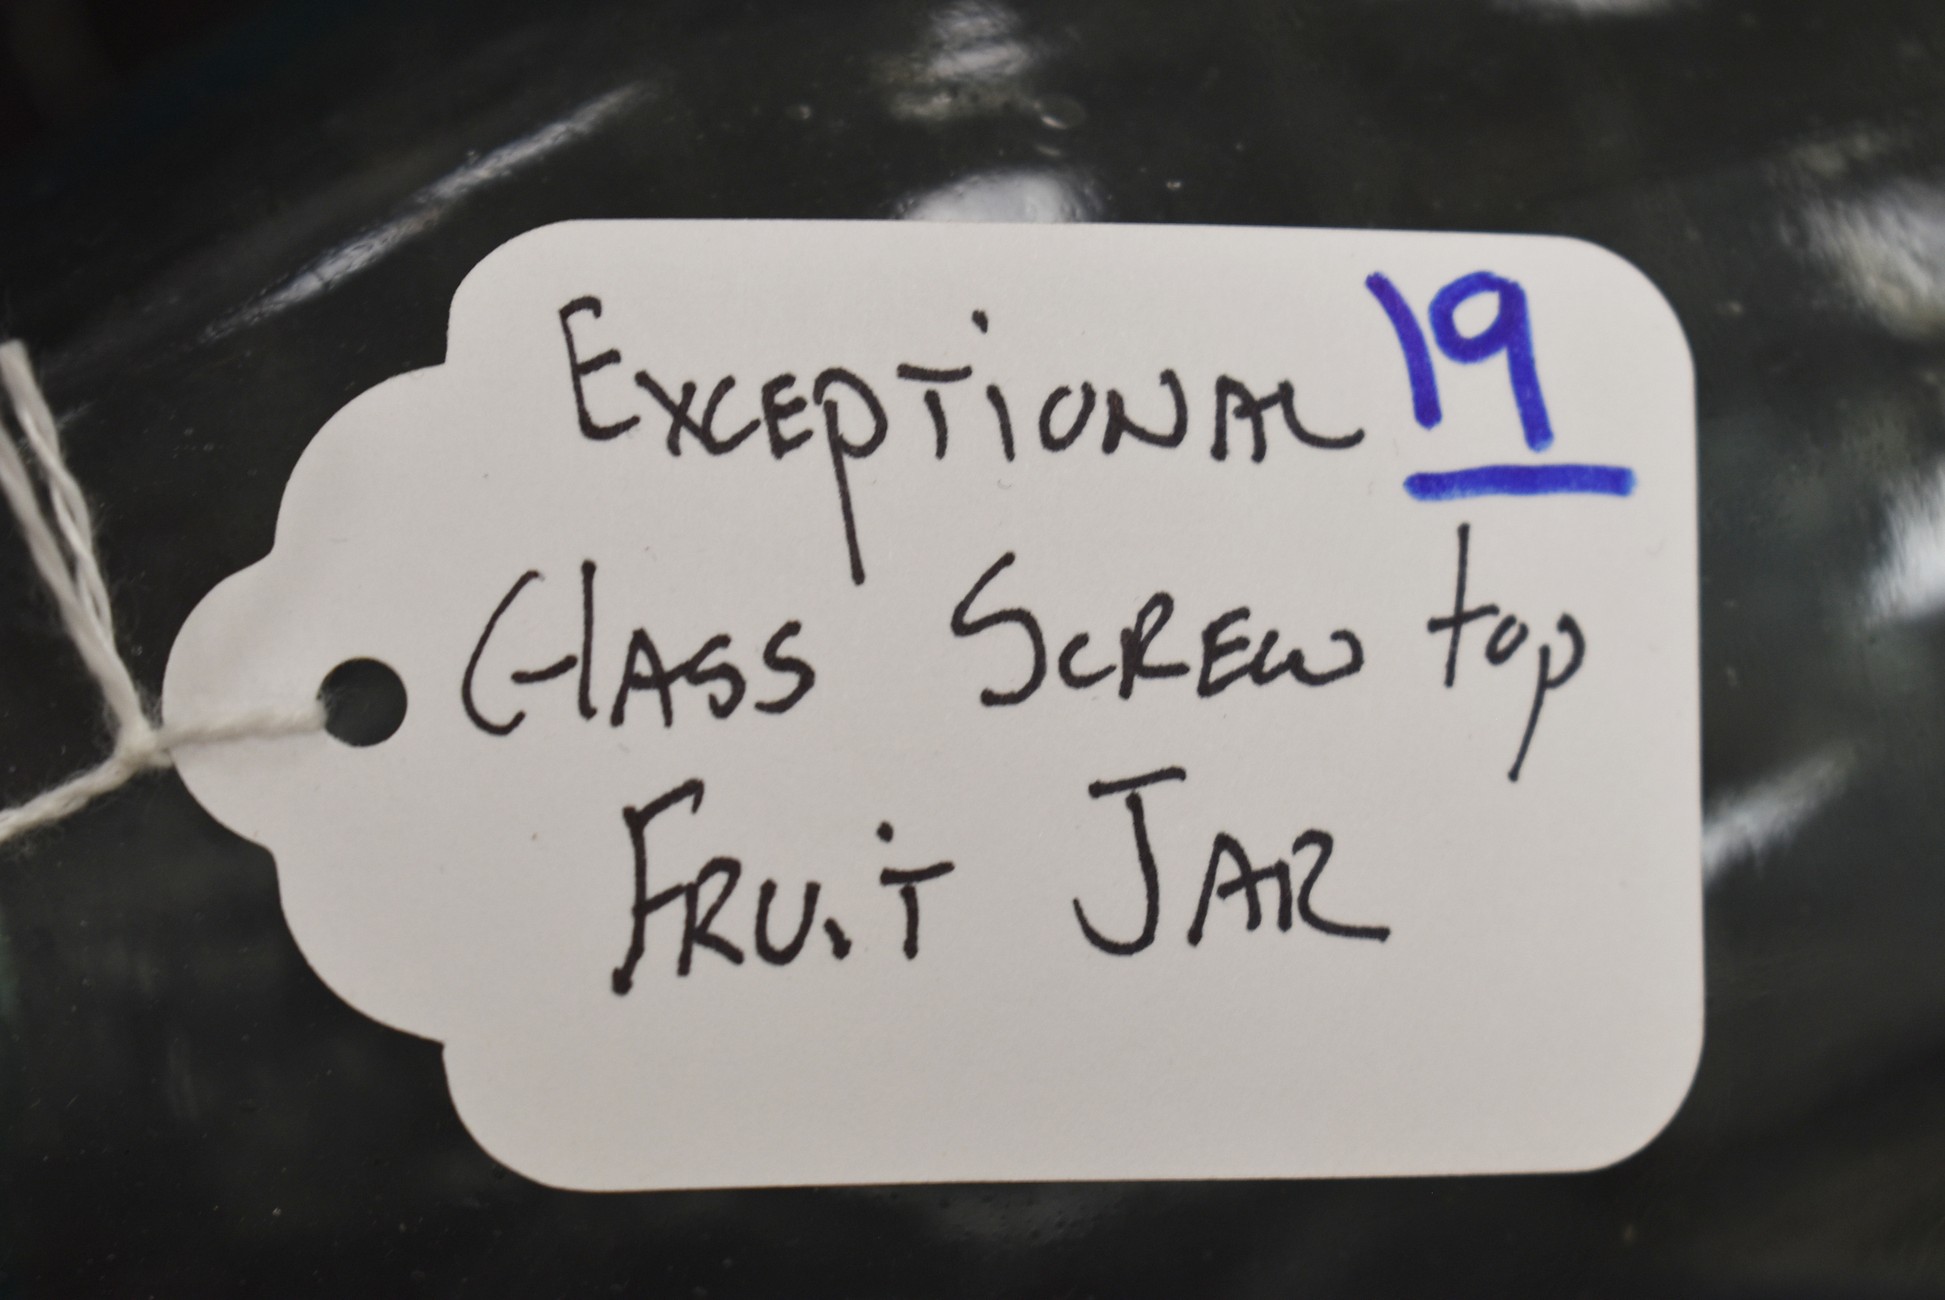 Exceptional 19
Glass Screw top
Fruit Jar